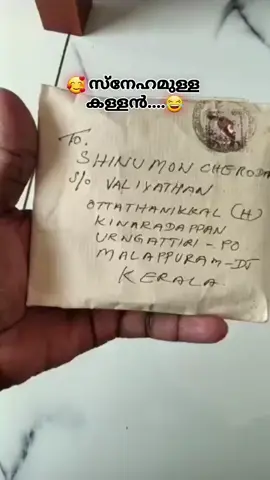 🥰സ്നേഹമുള്ള
കള്ളൻ....😂
To,
SHINUMON CHERODA
S/o VALIYATHAN
OTTATHANIKKAL (H)
KINARADAPPAN
URNGATTIRI - PO
MALAPPURAM - DT
KERALA